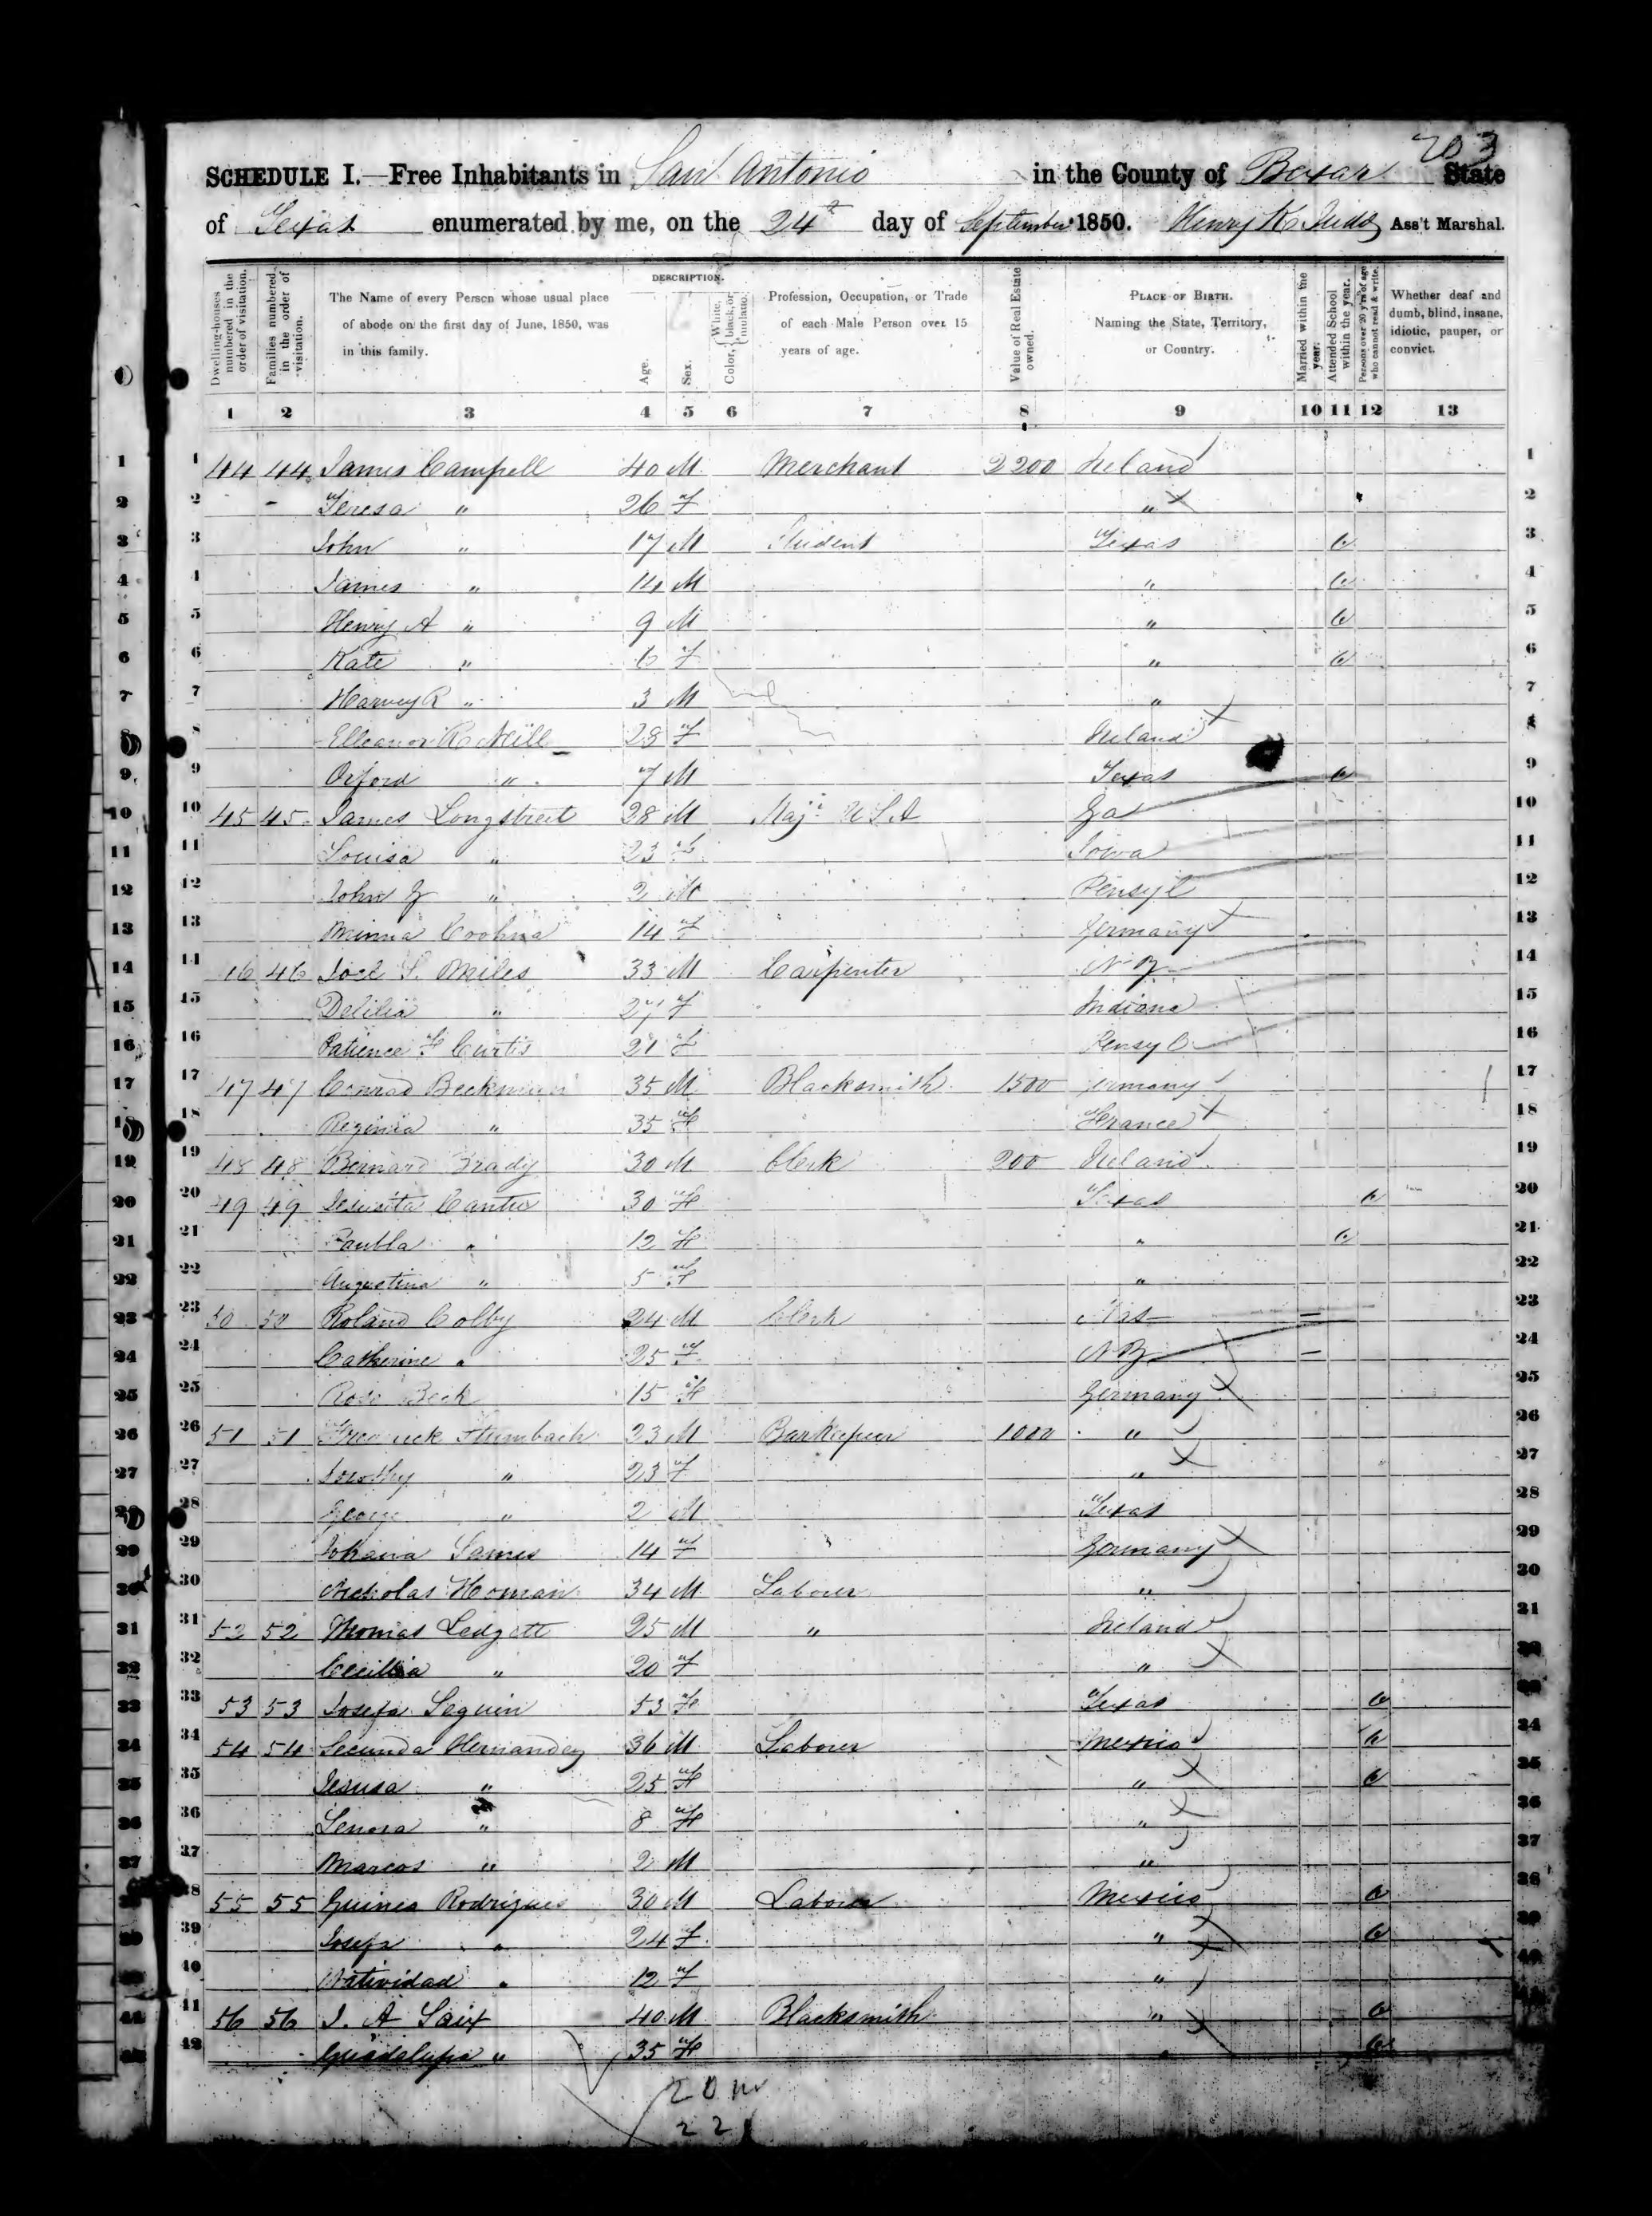 203
SCHEDULE I.—Free Inhabitants in San Antonio in the County of Bexar State
of Texas enumerated by me, on the 24th day of September 1850. Henry K. Judd Ass't Marshal.
DESCRIPTION.
Dwelling-houses numbered in the order of visitation.
Families numbered in the order of visitation.
The Name of every Person whose usual place of abode on the first day of June, 1850, was in this family.
Age.
Sex.
Color, { White, black, or mulatto.
Profession, Occupation, or Trade of each Male Person over 15 years of age.
Value of Real Estate owned.
PLACE OF BIRTH. Naming the State, Territory, or Country.
Married within the year.
Attended School within the year.
Persons over 20 y'rs of age who cannot read & write.
Whether deaf and dumb, blind, insane, idiotic, pauper, or convict.
1 2 3 4 5 6 7 8 9 10 11 12 13
1 44 44 James Campbell 40 M Merchant 2200 Ireland 1
2 - Teresa " 26 F " 2
3 John " 17 M Student Texas 3
4 James " 14 M " 4
5 Henry A " 9 M " 5
6 Kate " 6 F " 6
7 Harvey R " 3 M " 7
8 Elleanor 28 F Ireland 8
9 Orford " 7 M Texas 9
10 45 45 James Longstreet 28 M Maj. U S A Ga 10
11 Louisa " 23 F Iowa 11
12 John G " 2 M Pensyl 12
13 Minna 14 F Germany 13
14 46 46 Joel S. Miles 33 M Carpenter N Y 14
15 Delilia " 27 F Indiana 15
16 Patience F Curtis 21 F Pensyl 16
17 47 47 Conrad Beckman 35 M Blacksmith 1500 Germany 17
18 Reginia " 35 F France 18
19 48 48 Bernard Brady 30 M Clerk 200 Ireland 19
20 49 49 Jesusita Cantu 30 F Texas 20
21 Paubla " 12 F " 21
22 Augustina " 5 F " 22
23 50 50 Roland Colby 24 M Clerk Mas 23
24 Catherine " 25 F N Y 24
25 Rosa Beck 15 F Germany 25
26 51 51 Frederick 23 M Barkeeper 1000 " 26
27 Dorothy " 23 F " 27
28 George " 2 M Texas 28
29 Johana James 14 F Germany 29
30 Nicholas Homan 34 M Laborer " 30
31 52 52 Thomas Ledgett 25 M " Ireland 31
32 Cecillia " 20 F " 32
33 53 53 Josefa Seguin 53 F Texas 33
34 54 54 Secunda Hernandez 36 M Laborer Mexico 34
35 Jesusa " 25 F " 35
36 Lenora " 8 F " 36
37 Marcos " 2 M " 37
38 55 55 Rodrigues 30 M Laborer Mexico 38
39 Josefa " 24 F " 39
40 Natividad " 12 F " 40
41 56 56 J. A 40 M Blacksmith " 41
42 Guadalupa " 35 F " 42
20 m
22 f